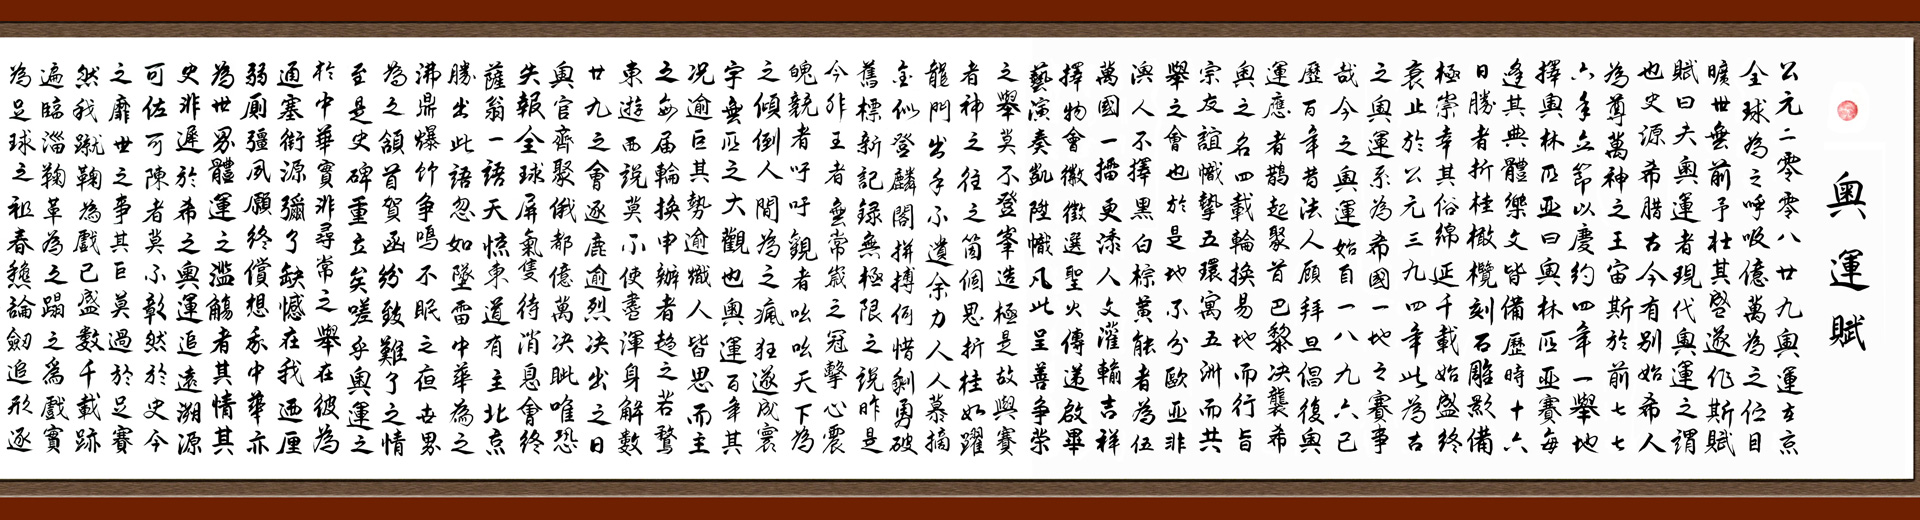 奧運賦
公元二零零八廿九奧運在京
全球為之呼吸億萬為之位目
曠世無前予壯其盛遂作斯賦
賦曰夫奧運者現代奧運之謂
也史源希腊古今有别始希人
為尊萬神之王宙斯於前七七
六年立節以慶約四年一舉地
擇奧林匹亚曰奧林匹亚賽每
逢其典體樂文皆備歷時十六
日勝者折桂橄欖刻石雕影備
極崇幸其俗綿延千載始盛终
衰止於公元三九四年此為古
之奧運系為希國一地之賽事
哉今之奧運始自一八九六已
歷百年昔法人顾拜旦倡復奧
運應者鵲起聚首巴黎决襲希
奧之名四載輪换易地而行旨
宗友誼幟摯五環寓五洲而共
舉之會也於是地不分歐亚非
澳人不擇黑白棕黄能者為伍
萬國一播更添人文灌輸吉祥
擇物會徽徵選聖火傳递啟畢
藝演奏凱陞幟凡此呈善争荣
之舉莫不登峯造極是故與賽
者神之往之箇個思折桂如躍
龍門出手不遺余力人人慕摘
金似登麟閣拼搏何惜剩勇破
舊標新記録無極限之說昨是
今非王者無常嵗之冠擊心震
魄競者吁吁觀者吆吆天下為
之傾倒人間為之瘋狂遂成寰
宇無匹之大觀也奧運百年其
况逾巨其勢逾熾人皆思而主
之每届輪换申辦者趋之若鶩
東遊西説莫不使盡渾身解數
廿九之會逐鹿逾烈决出之日
奧官齊聚俄都億萬决眦唯恐
失報全球屏氣隻待消息會终
薩翁一語天惊東道有主北京
勝出此語忽如墜雷中華為之
沸鼎爆竹争鳴不眠之夜世界
為之頷首賀函纷致難了之情
至是史碑重立矣嗟乎奧運之
於中華實非尋常之舉在彼為
通塞銜源彌了缺憾在我迺厘
弱厕疆夙願终償想我中華亦
為世界體運之滥觴者其情其
史非遲於希之奧運追遠溯源
可佐可陳者莫不彰然於史今
之靡世之事其巨莫過於足賽
然我蹴鞠為戲已盛數千載跡
遍臨淄鞠革為之蹋之為戲實
為足球之祖春燕論劍追形逐